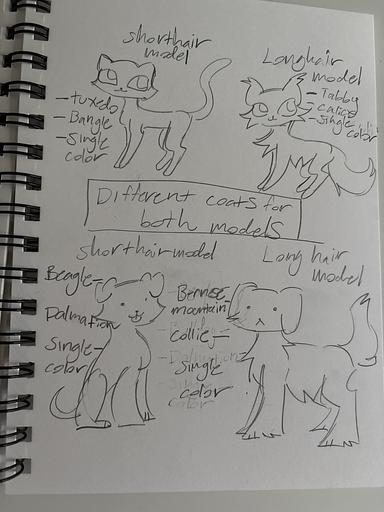 shorthair
model
-tuxedo
- Bangle
-Single
color
Longhair
model
- Tabby
calico
-single
color
Different coats for
both models
shorthair model
Beagle-
Dalmation
Single-
color
Long hair
model
Bernese
mountain-
collie-
Single
color